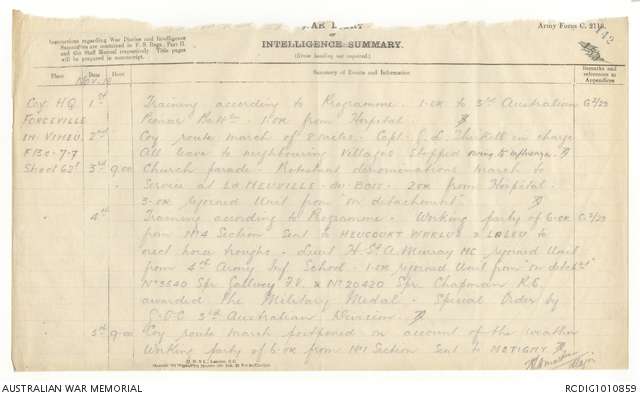 Army Form C. 2118.
WAR DIARY
OR
INTELLIGENCE SUMMARY.
(Erase heading not required.)
Instructions regarding War Diaries and Intelligence
Summaries are contained in F. S. Regs., Part II.
and the Staff Manual respectively. Title pages
will be prepared in manuscript.
142
Place Date Hour Summary of Events and Information Remarks and references to Appendices
Nov. 18
Coy. HQ 1st Training according to Programme. 1.OR to 3rd Australian G2/29
FORCEVILLE Pioneer Battn. 1.OR from Hospital.
IN VIMEU 2nd Coy route march of 8 miles. Capt. G. L. in charge
F.8.c.7.7 All leave to neighbouring Villages stopped owing to influenza.
Sheet 62E 3rd 9.00 Church parade. Protestant denominations march to
Service at LA NEUVILLE-au-BOIS. 2 OR from Hospital.
3.OR rejoined Unit from "on detachment".
4th Training according to Programme. Working party of 6.OR G2/29
from No 4 Section sent to HEUCOURT WARLUS & LALEU to
erect horse troughs. Lieut H. St A. Murray MC rejoined Unit
from 4th Army Inf School. 1.OR rejoined Unit from "on detcht"
No 3540 Spr Gallvey F.V. & No 20420 Spr. Chapman R.C.
awarded the Military Medal. Special Order by
G.O.C. 3rd Australian Division.
5th 9.00 Coy route march postponed on account of the weather
Working party of 6.OR from No 1 Section sent to METIGNY.
Major
AUSTRALIAN WAR MEMORIAL
RCDIG1010859